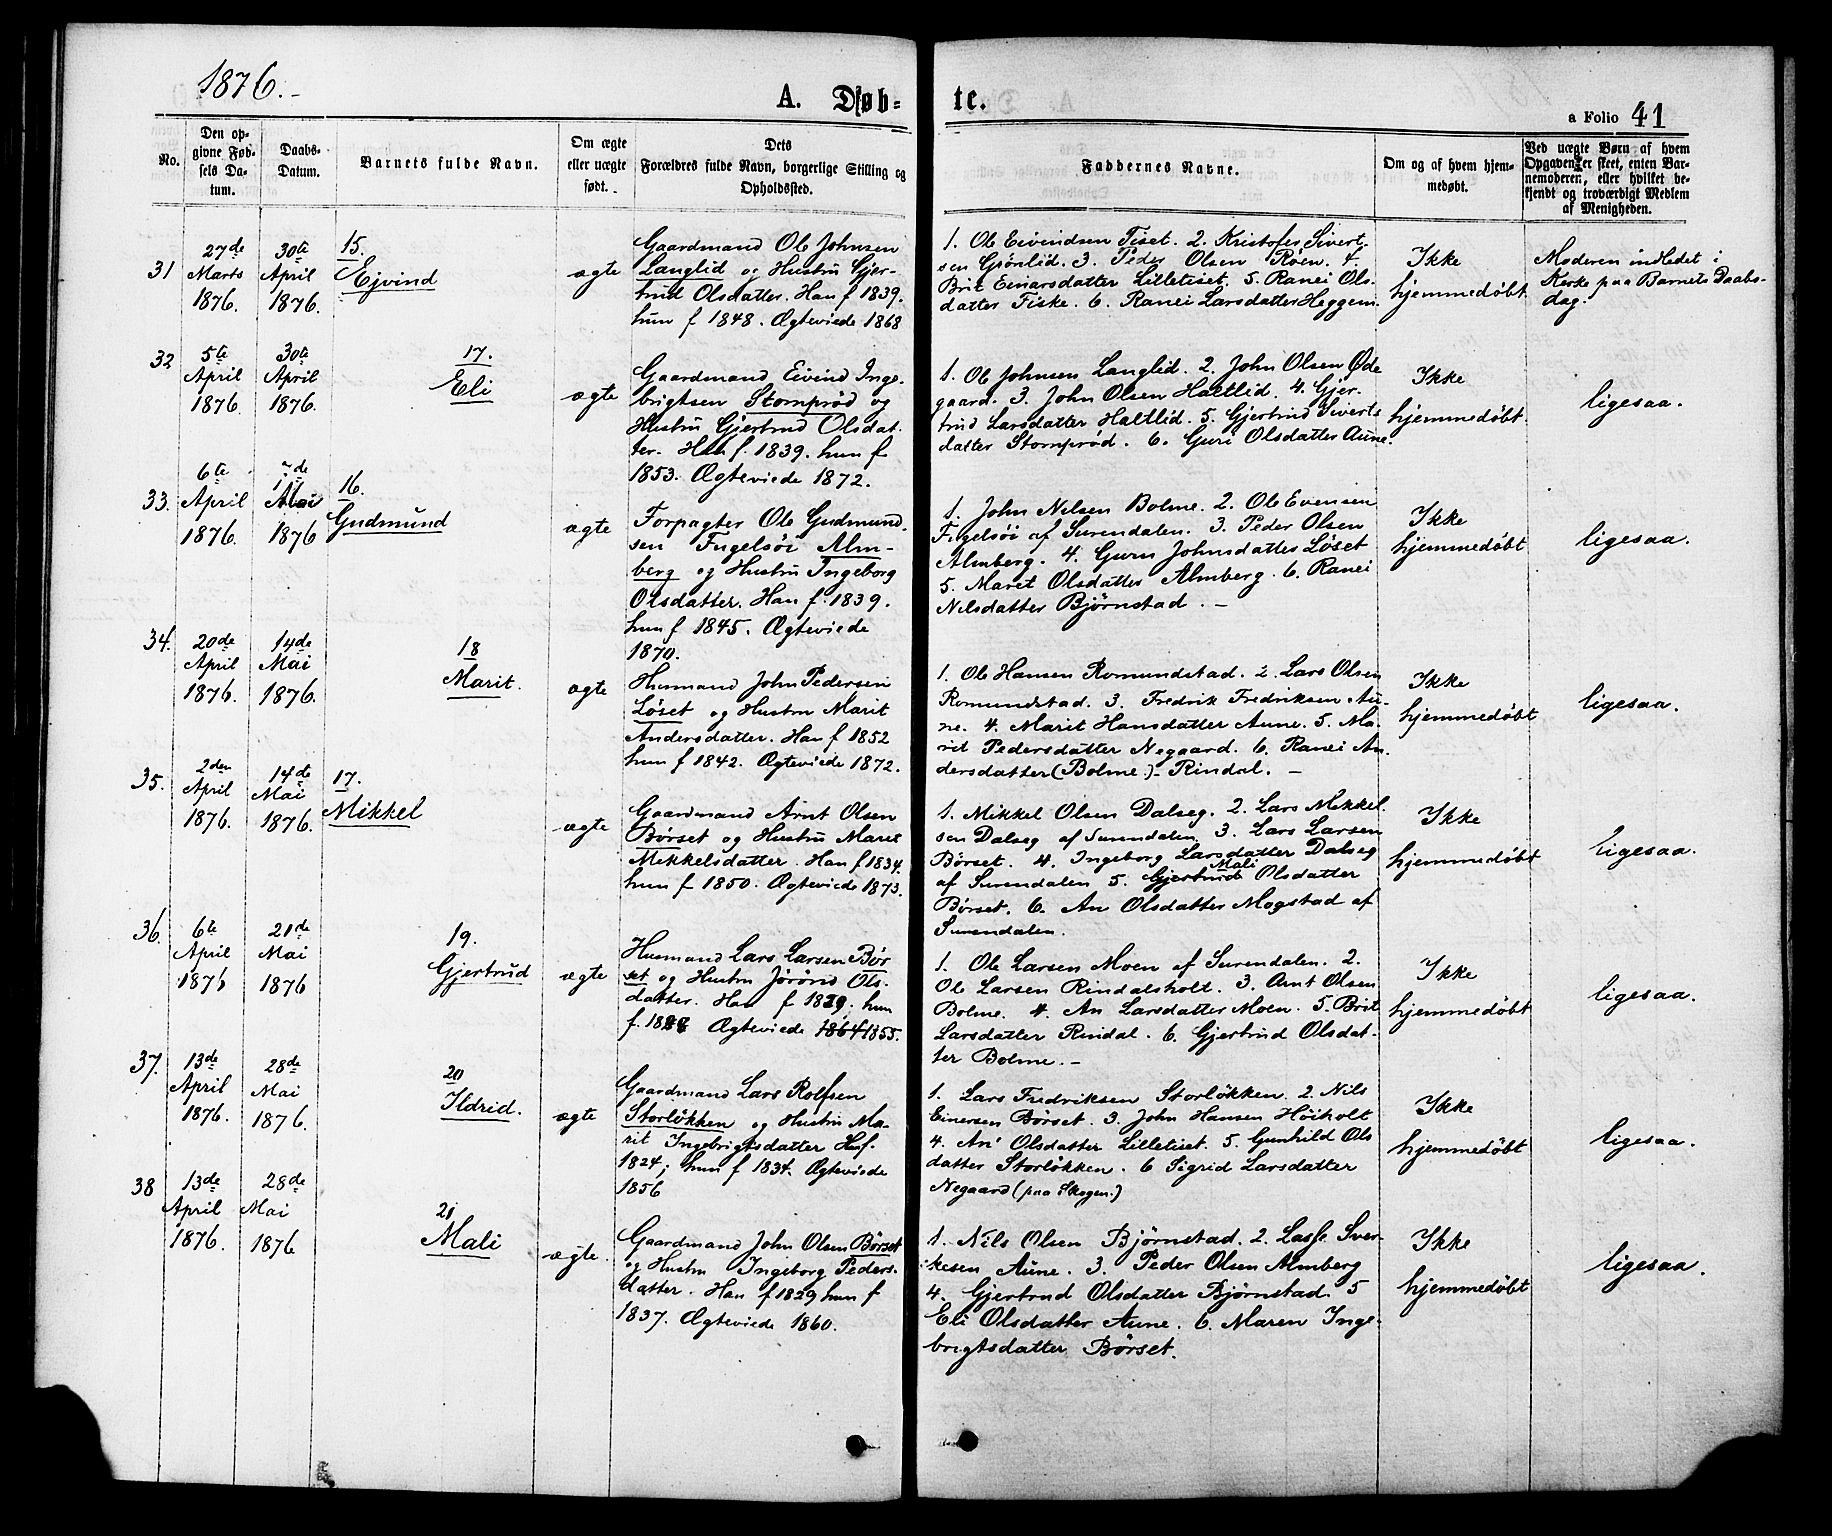 1876.-
A. Døb-
te.
a Folio 41
No.
Den op-
givne Fød-
sels Da-
tum.
Daabs-
Datum.
Barnets fulde Navn.
Om ægte
eller uægte
født.
Dets
Forældres fulde Navn, borgerlige Stilling og
Opholdssted.
Faddernes Navne.
Om og af hvem hjem-
medøbt.
Ved uægte Børn af hvem
Opgaven er skeet, enten Bar-
nemoderen, eller hvilket be-
kjendt og troværdigt Medlem
af Menigheden.
31
27de
Marts
1876.
30te
April
1876.
15.
Ejvind
ægte
Gaardmand Ole Johnsen
Langlid og Hustru Gjer-
trud Olsdatter. Han f 1839.
hun f 1848. Ægteviede 1868
1. Ole Eivindsen Tiset. 2. Kristofer Sivert-
sen Gjørlid. 3. Peder Olsen Røen. 4.
Brit Einarsdatter Lilletiset. 5. Ranei Ols-
datter Fiske. 6. Ranei Larsdatter Heggem.
Ikke
hjemmedøbt
Moderen indledet i
Kirke paa Barnets Daabs-
dag.
32
5te
April
1876.
30te
April
1876.
17.
Eli
ægte
Gaardmand Eivind Inge-
brigtsen Stomprød og
Hustru Gjertrud Olsdat-
ter. Han f. 1839. hun f
1853. Ægteviede 1872.
1. Ole Johnsen Langlid. 2. John Olsen Øde
gaard. 3. John Olsen Haltlid. 4. Gjer-
trud Larsdatter Haltlid. 5. Gjertrud Siverts
datter Stomprød. 6. Guri Olsdatter Aune.
Ikke
hjemmedøbt.
ligesaa.
33.
6te
April
1876.
7de
Mai
1876
16.
Gudmund
ægte
Forpagter Ole Gudmund-
sen Fugelsøi Alm-
berg og Hustru Ingeborg
Olsdatter. Han f. 1839.
hun f 1845. Ægteviede
1870.
1. John Nilsen Bolme. 2. Ole Evensen
Fugelsøi af Surendalen. 3. Peder Olsen
Almberg. 4. Guru Johnsdatter Løset
5. Maret Olsdatter Almberg. 6. Ranei
Nilsdatter Bjørnstad. -
Ikke
hjemmedøbt
ligesaa.
34.
20de
April
1876.
14de
Mai
1876.
18
Marit.
ægte
Husmand John Pedersen
Løset og Hustru Marit
Andersdatter. Han f 1852
hun f 1842. Ægteviede 1872.
1. Ole Hansen Romundstad. 2. Lars Olsen
Romundstad. 3. Fredrik Fredriksen Au-
ne. 4. Marit Hansdatter Aune. 5. Ma-
rit Pedersdatter Negaard. 6. Ranei An-
dersdatter (Bolme) - Rindal. -
Ikke
hjemmedøbt
ligesaa.
35.
2den
April
1876.
14de
Mai
1876.
17.
Mikkel
ægte
Gaardmand Arnt Olsen
Børset og Hustru Maret
Mikkelsdatter. Han f 1834.
hun f 1850. Ægteviede 1873.
1. Mikkel Olsen Dalseg. 2. Lars Mikkel-
sen Dalseg af Surendalen 3. Lars Larsen
Børset. 4. Ingeborg Larsdatter Dalseg
af Surendalen 5. Gjertrud Mali Olsdatter
Børset. 6. An Olsdatter Mogstad af
Surendalen.
Ikke
hjemmedøbt
ligesaa.
36.
6te
April
1876
21de
Mai
1876
19.
Gjertrud
ægte
Husmand Lars Larsen Bør
set og Hustru Jørønd Ols-
datter. Han f 1829; hun
f. Ægteviede 1864 1855.
1. Ole Larsen Moen af Surendalen. 2.
Ole Larsen Rindalsholt. 3. Arnt Olsen
Bolme. 4. An Larsdatter Moen. 5. Brit
Larsdatter Rindal. 6. Gjertrud Olsdat-
ter Bolme. -
Ikke
hjemmedøbt
ligesaa.
37.
13de
April
1876.
28de
Mai
1876.
20
Ildrid.
ægte
Gaardmand Lars Rolfsen
Storløkken og Hustru Ma-
rit Ingebrigtsdatter H. f.
1824; hun f 1834. Ægteviede
1856
1. Lars Fredriksen Storløkken. 2. Nils
Einersen Børset. 3. John Hansen Høiholt
4. An Olsdatter Lilletiset. 5. Gunhild Ols
datter Storløkken. 6 Sigrid Larsdatter
Negaard (paa Skogen.)
Ikke
hjemmedøbt
ligesaa.
38
13de
April
1876.
28de
Mai
1876
21
Mali
ægte.
Gaardmand John Olsen Børset
og Hustru Ingeborg Peders-
datter. Han f 1829 hun f
1837. Ægteviede 1860.
1. Nils Olsen Bjørnstad. 2. Lasse Sver-
kesen Aune. 3. Peder Olsen Almberg
4. Gjertrud Olsdatter Bjørnstad. 5
Eli Olsdatter Aune. 6. Maren Inge-
brigtsdatter Børset.
Ikke
hjemmedøbt
ligesaa.